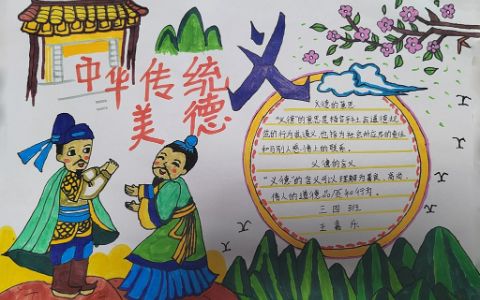 中华传统
美德
义
义德的意思
"义德"的意思是指合乎上者道德规
范的行为或道义,也指为社会所应尽的责任
和与别人感情上的联系。
义德的含义
"义德"的含义可以理解为善良、高尚、
伟人的道德品质和行为。
三四班
王嘉乐